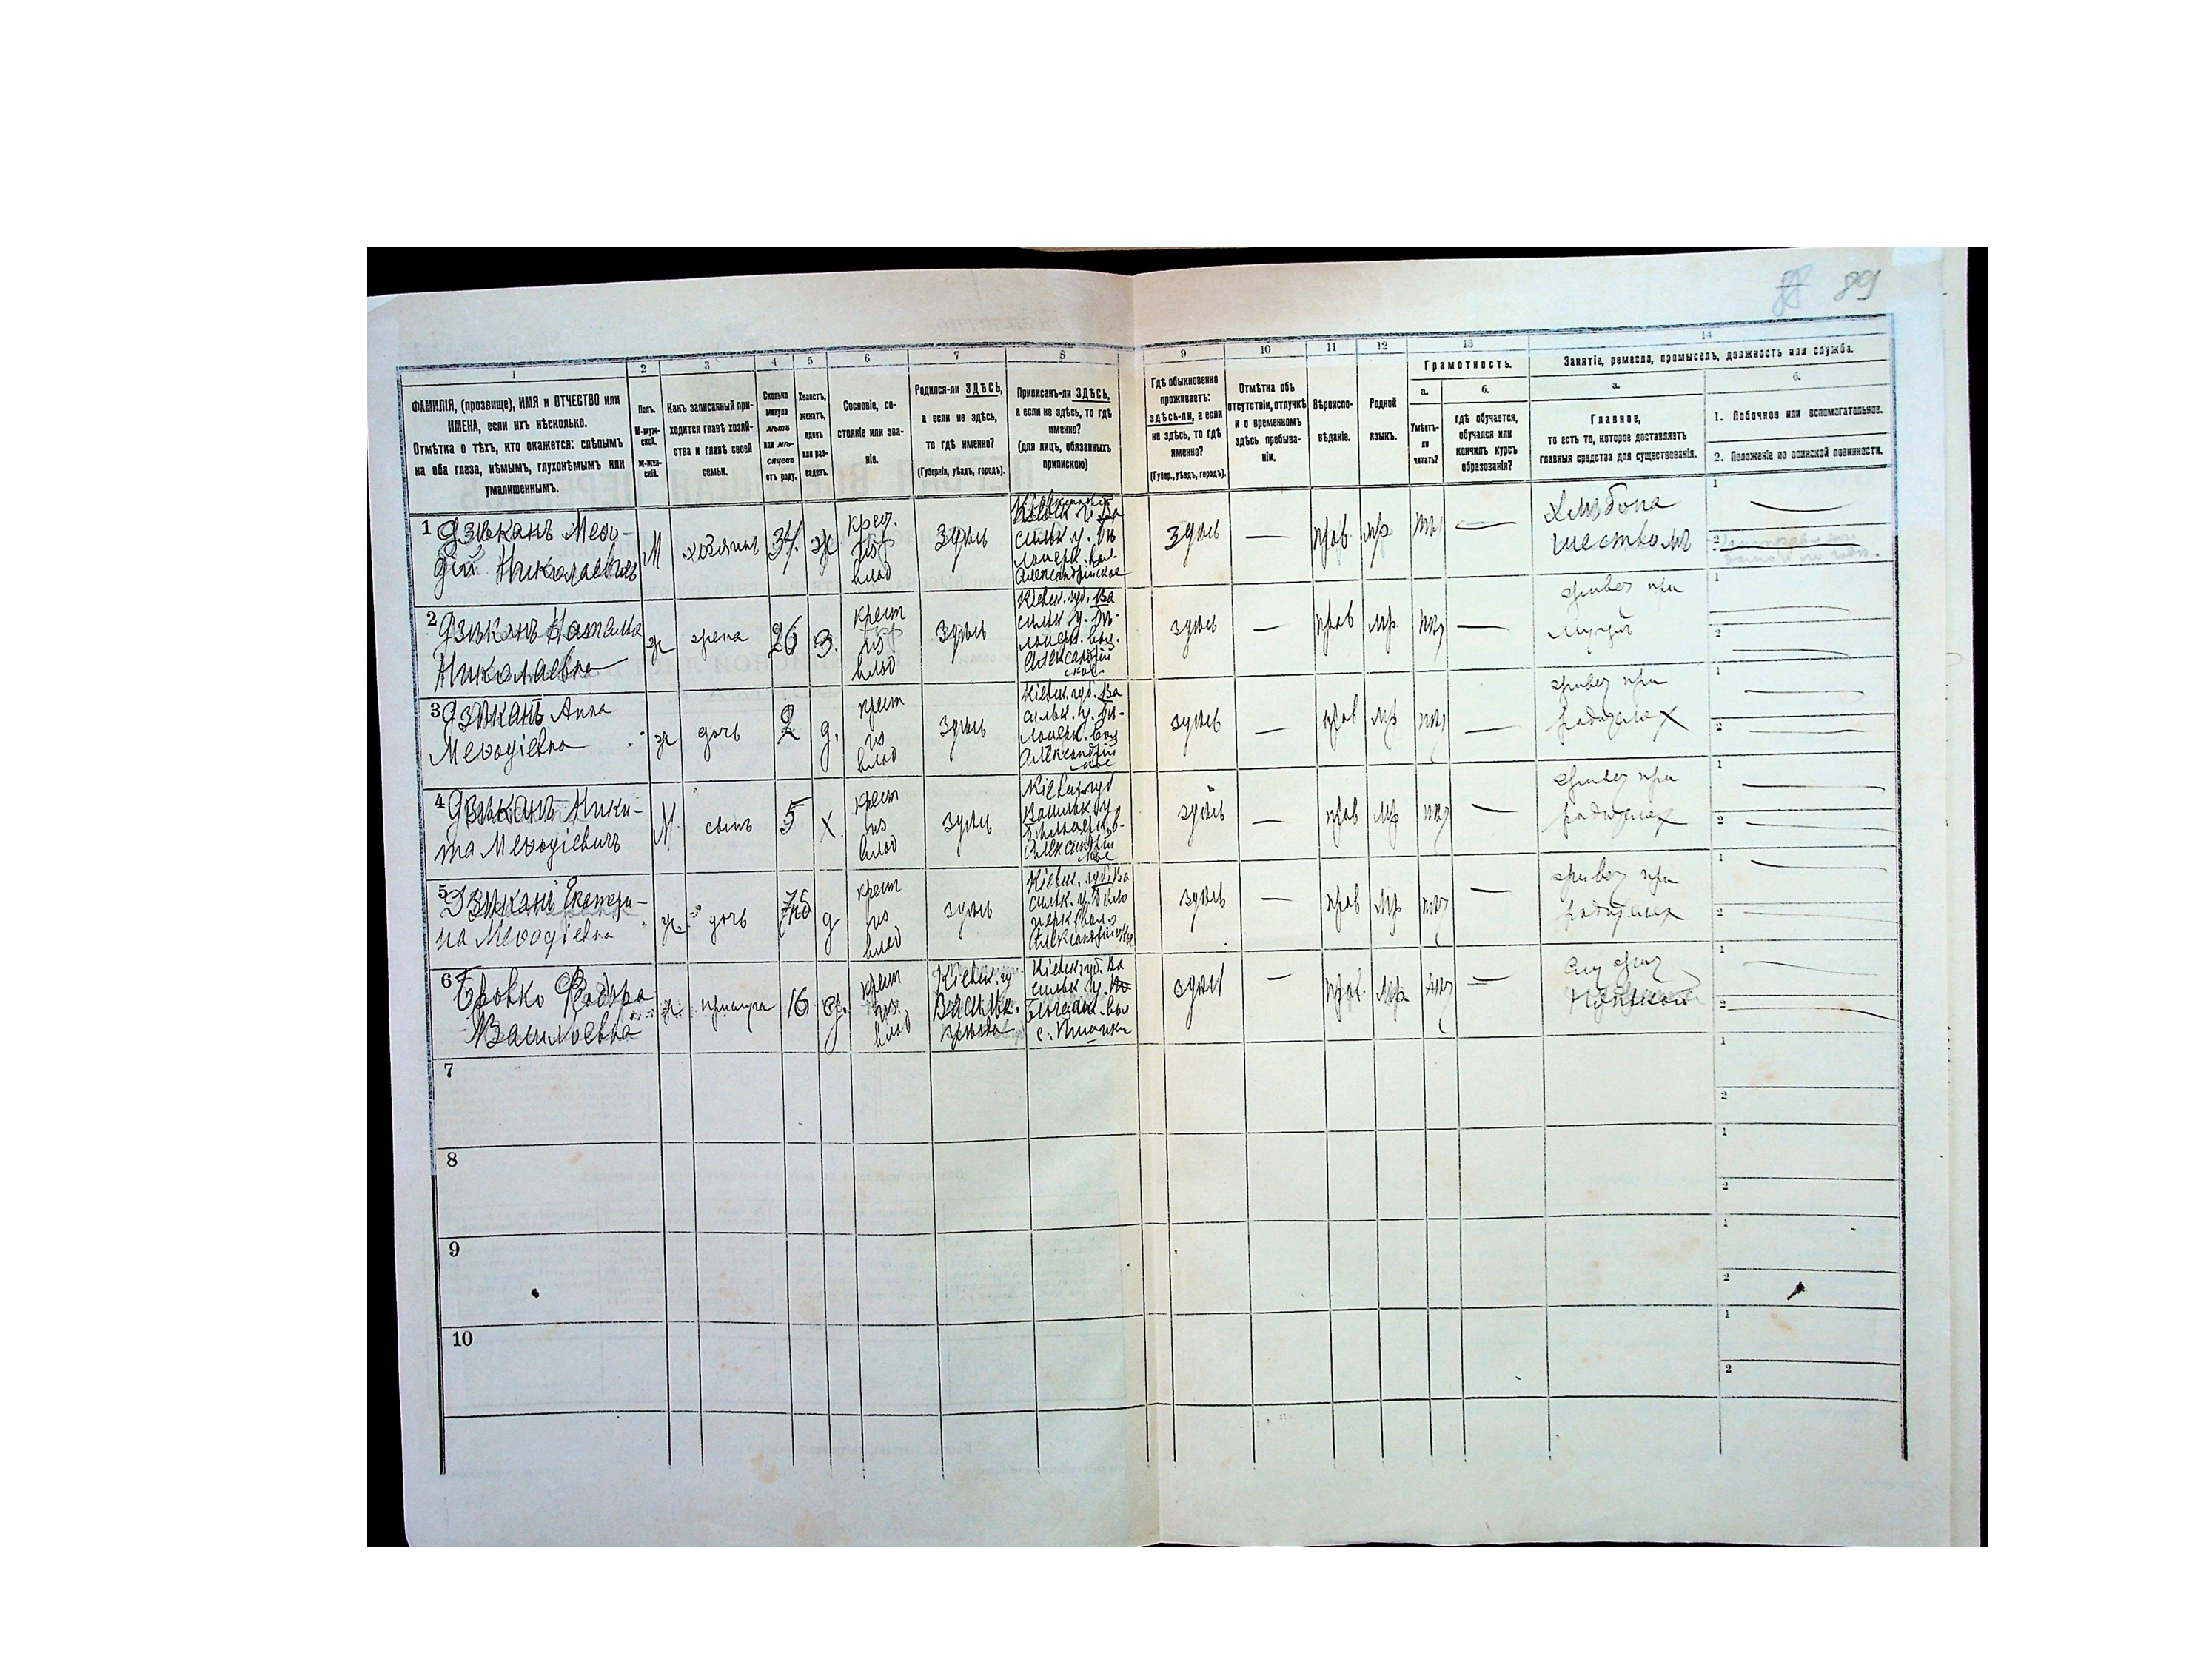 89
1 2 3 4 5 6 7 8 9 10 11 12 13 14
ФАМИЛІЯ, (прозвище), ИМЯ и ОТЧЕСТВО или
ИМЕНА, если ихъ нѣсколько.
Отмѣтка о тѣхъ, кто окажется: слѣпымъ
на оба глаза, нѣмымъ, глухонѣмымъ или
умалишеннымъ.
Полъ.
М-муж-
ской.
ж-жен-
скій.
Какъ записанный при-
ходится главѣ хозяй-
ства и главѣ своей
семьи.
Сколько
минуло
лѣтъ
или мѣ-
сяцевъ
отъ роду.
Холостъ,
женатъ,
вдовъ
или раз-
веденъ.
Сословіе, со-
стояніе или зва-
ніе.
Родился-ли ЗДѢСЬ,
а если не здѣсь,
то гдѣ именно?
(Губернія, уѣздъ, городъ).
Приписанъ-ли ЗДѢСЬ,
а если не здѣсь, то гдѣ
именно?
(для лицъ, обязанныхъ
припискою)
Гдѣ обыкновенно
проживаетъ:
здѣсь-ли, а если
не здѣсь, то гдѣ
именно?
(Губер., уѣздъ, городъ).
Отмѣтка объ
отсутствіи, отлучкѣ
и о временномъ
здѣсь пребыва-
ніи.
Вѣроиспо-
вѣданіе.
Родной
языкъ.
Грамотность.
а.
Умѣетъ-
ли
читать?
б.
гдѣ обучается,
обучался или
кончилъ курсъ
образованія?
Занятіе, ремесло, промыселъ, должность или служба.
а.
Главное,
то есть то, которое доставляетъ
главныя средства для существованія.
б.
1. Побочное или вспомогательное.
2. Положеніе по воинской повинности.
1 Дзюканъ Меѳо-
дій Николаевичъ
М хозяинъ 34 ж
крес.
из
влад
здѣсь
сильк у.
Александрійское
здѣсь — прав мр —
Хлѣбопа
шествомъ
1
2
2 Наталка
Николаевна
ж жена 26 З.
крест
из
влад
здѣсь
Кіевск. губ. Ва
сильк у. Бѣ-
лоцерк. вол.
Александрій
ское
здѣсь — прав мр. —
живет при
мужѣ
1
2
3 Анна
Меѳодіевна
ж дочь 2 д.
крест
из
влад
здѣсь
Кіевск. губ. Ва
сильк. у. Бѣ-
лоцерк. вол
Александрій
ское
здѣсь — прав мр —
живет при
родителях
1
2
4 Ники-
та Меѳодіевичъ
М. сынъ 5 х.
крест
из
влад
здѣсь
Кіевск губ
Васильк у
здѣсь — прав мр —
живет при
родителях
1
2
5 Екатери-
на Меѳодіевна
ж. дочь д
крест
из
влад
здѣсь
Кіевск. губ. Ва
сильк. у. Бѣло
церк вол
здѣсь — прав мр —
живет при
родителях
1
2
6 Бровко Ѳодора
Василіевна
ж. прислуга 16 д.
крест
из.
влад
Кіевск. гу
Васильк.
Кіевск губ. Ва
сильк у.
вол
с. Пищики
здѣсь — прав. мр —
1
2
7
1
2
8
1
2
9
1
2
10
1
2